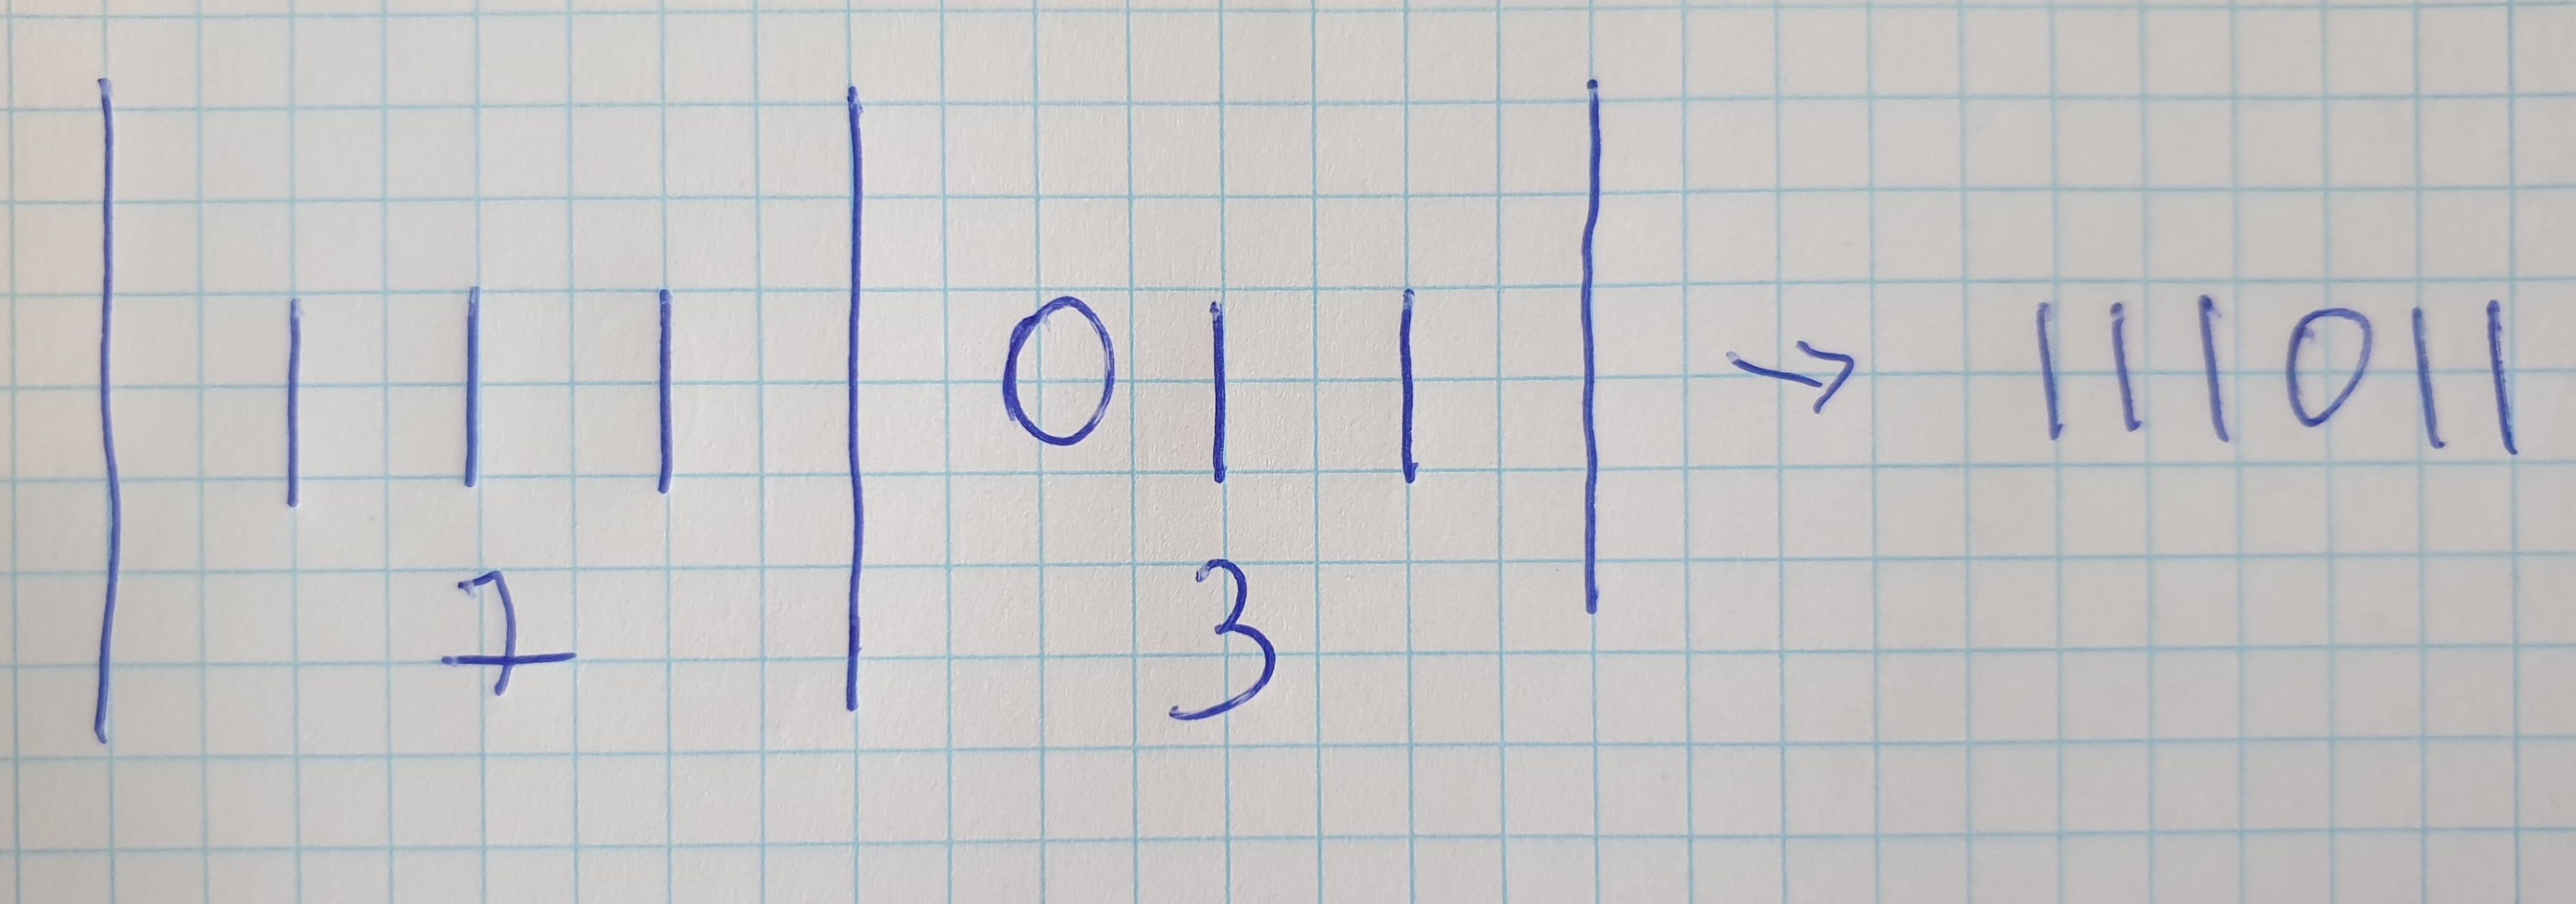 | 111 | 011 | → 111011
7 3